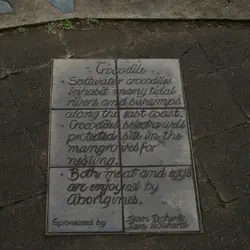 Crocodile
Saltwater crocodiles
inhabit many tidal
rivers and swamps
along the east coast.
Crocodiles select a well
protected site in the
mangroves for
nesting.
Both meat and eggs
are enjoyed by
Aborigines.
Sponsored by
Ian Howard